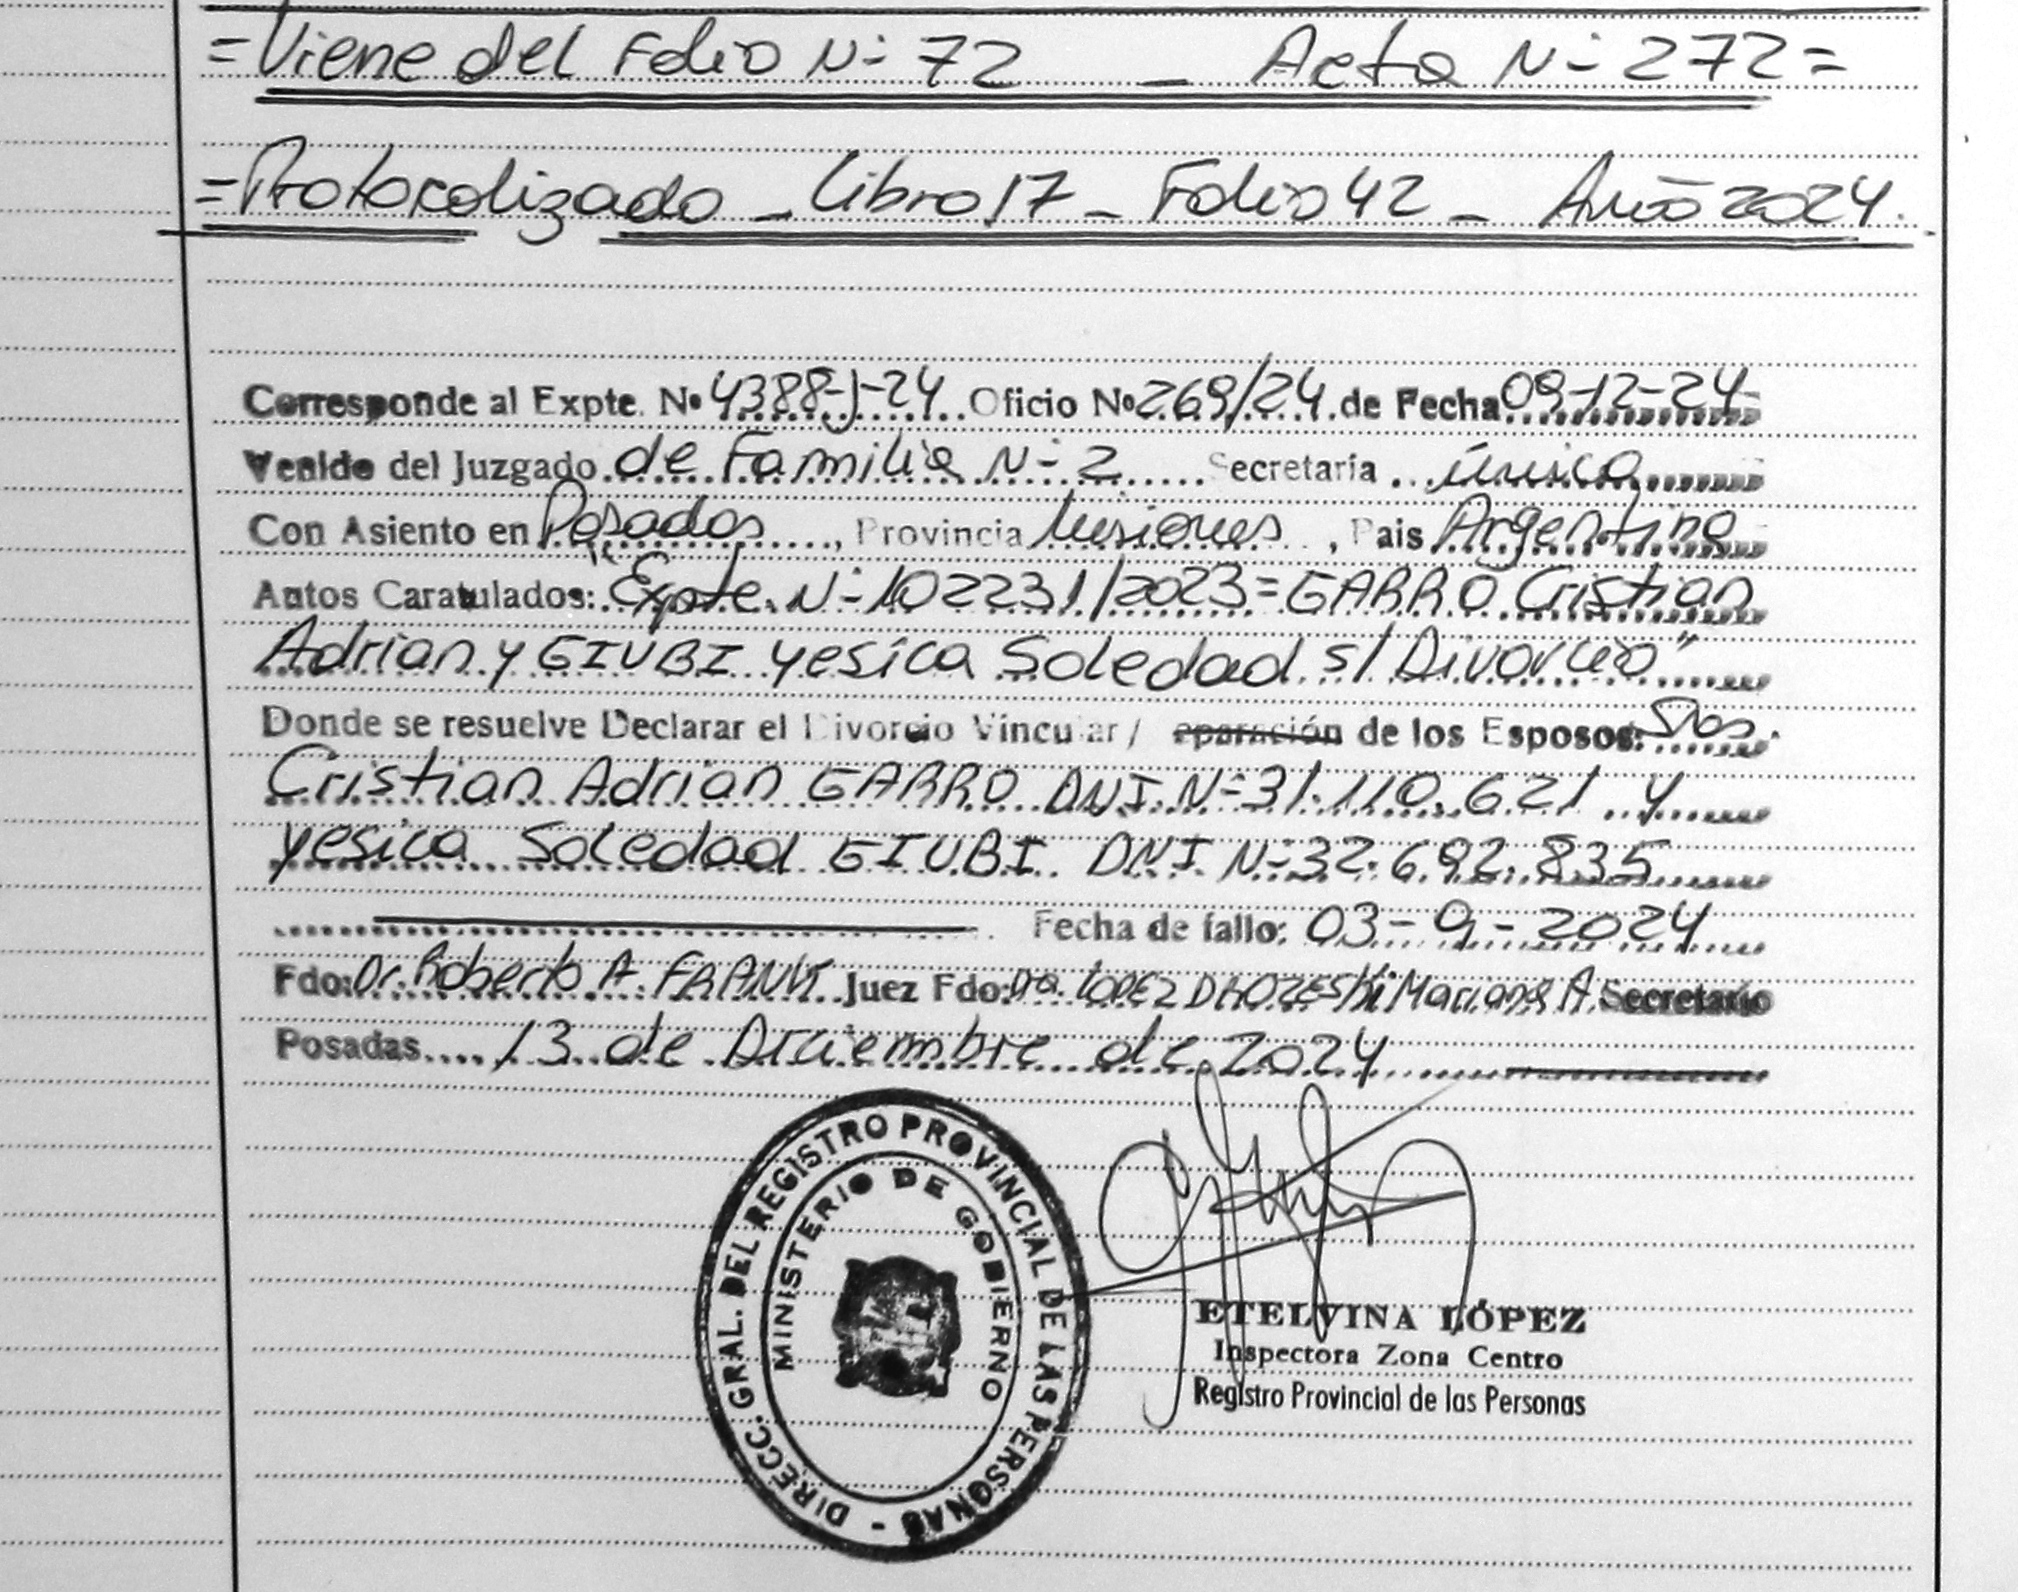 =Viene del Folio N- 72 _ Acta N- 272=
=Protocolizado _ Libro 17 _ Folio 42 _ Año 2024.
Corresponde al Expte. Nº 4388-J-24 Oficio Nº 269/24 de Fecha 09-12-24
Venido del Juzgado de Familia N- 2 Secretaria única
Con Asiento en Posadas, Provincia Misiones, Pais Argentina
Autos Caratulados: "Expte. N- 102231/2023= GARRO Cristian
Adrian y GIUBI Yesica Soledad s/ Divorcio"
Donde se resuelve Declarar el Divorcio Vincular / eparación de los Esposos: Dos.
Cristian Adrian GARRO DNI. N- 31.110.621 y
Yesica Soledad GIUBI DNI N- 32.692.835
Fecha de fallo: 03-9-2024
Fdo: Dr. Roberto A. Juez Fdo: Dra. LOPEZ Mariana A. Secretario
Posadas.... 13 de Diciembre de 2024
DIRECC. GRAL. DEL REGISTRO PROVINCIAL DE LAS PERSONAS -
MINISTERIO DE GOBIERNO
ETELVINA LÓPEZ
Inspectora Zona Centro
Registro Provincial de las Personas